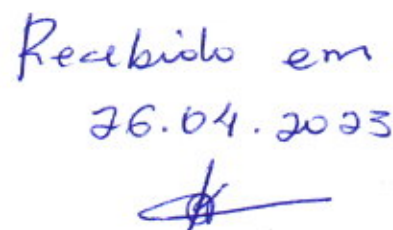 Recebido em
26.04.2023